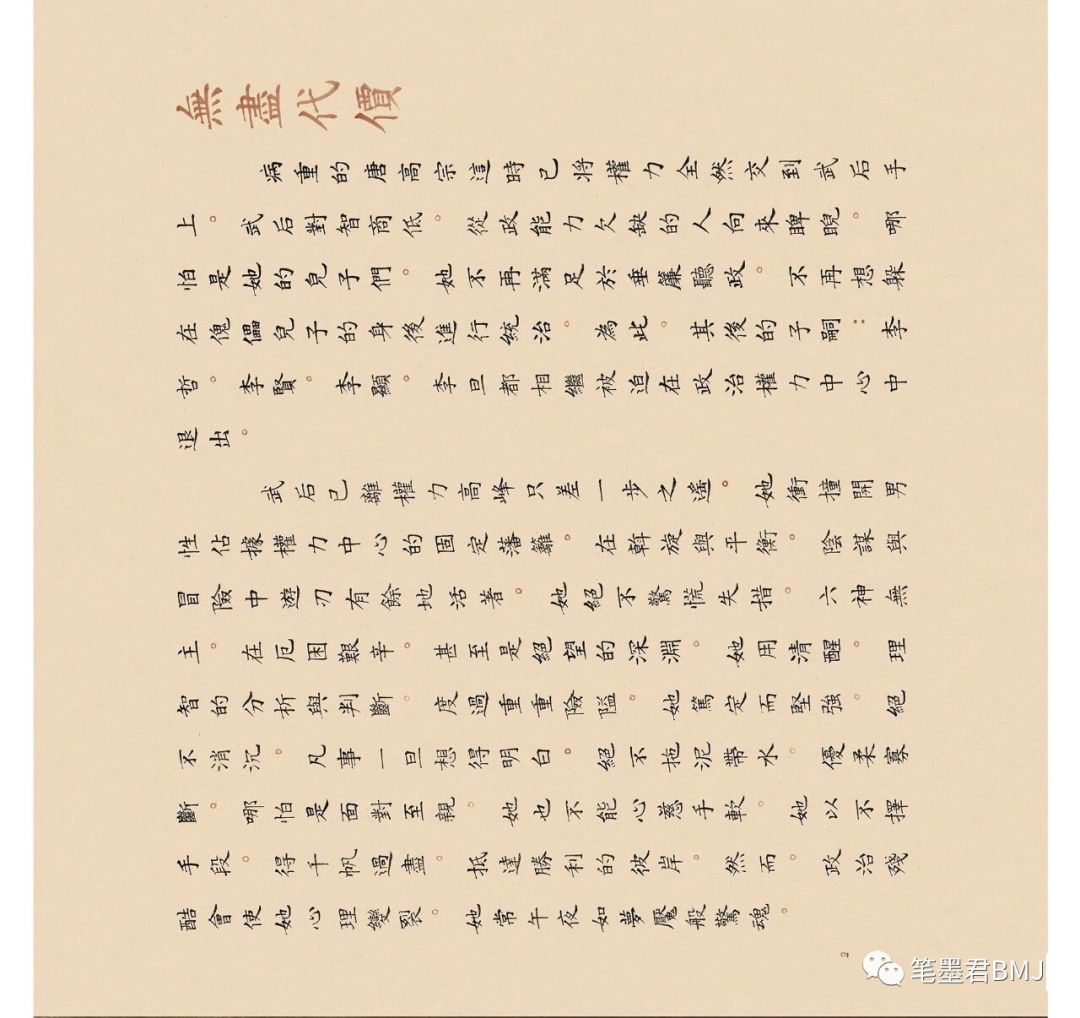 無盡代價
病重的唐高宗這時已將權力全然交到武后手
上。武后對智商低。從政能力欠缺的人向來睥睨。哪
怕是她的兒子們。她不再滿足於垂簾聽政。不再想躲
在傀儡兒子的身後進行統治。為此。其後的子嗣：李
哲。李賢。李顯。李旦都相繼被迫在政治權力中心中
退出。
武后已離權力高峰只差一步之遙。她衝撞開男
性佔據權力中心的固定藩籬。在斡旋與平衡。陰謀與
冒險中遊刃有餘地活著。她絕不驚慌失措。六神無
主。在厄困艱辛。甚至是絕望的深淵。她用清醒。理
智的分析與判斷。度過重重險隘。她篤定而堅強。絕
不消沉。凡事一旦想得明白。絕不拖泥帶水。優柔寡
斷。哪怕是面對至親。她也不能心慈手軟。她以不擇
手段。得千帆過盡。抵達勝利的彼岸。然而。政治殘
酷會使她心理變裂。她常午夜如夢魘般驚魂。
9
笔墨君BMJ